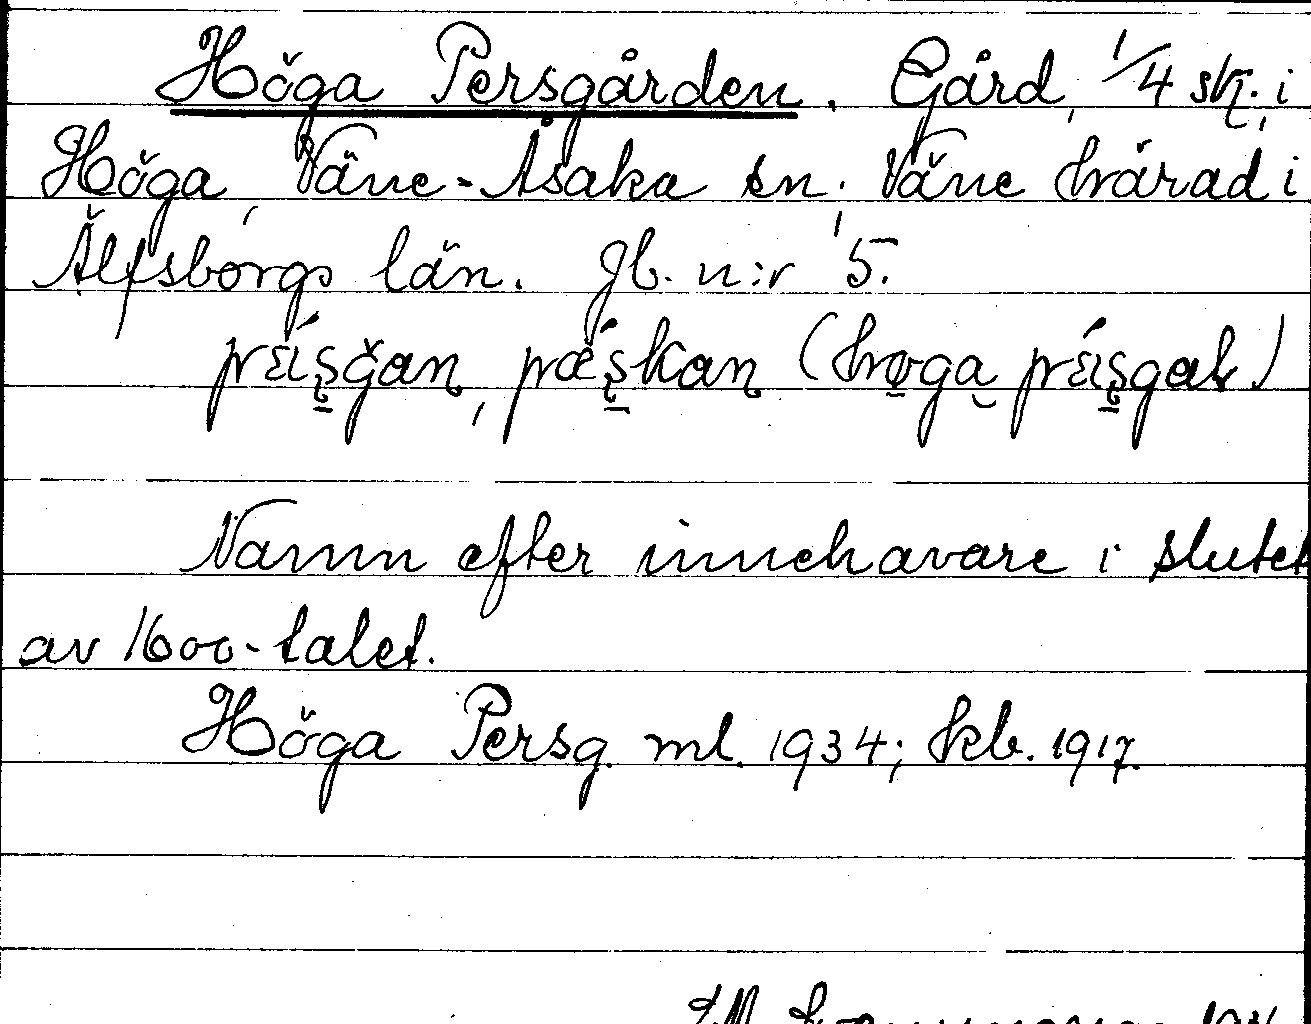 Höga Persgården. Gård, 1/4 sk. i
Höga, Väne-Åsaka sn. Väne härad, i
Älfsborgs län. Jb. n:r 5.
Namn efter innehavare i slutet
av 1600-talet.
Höga Persg. ml. 1934; kb. 1917.